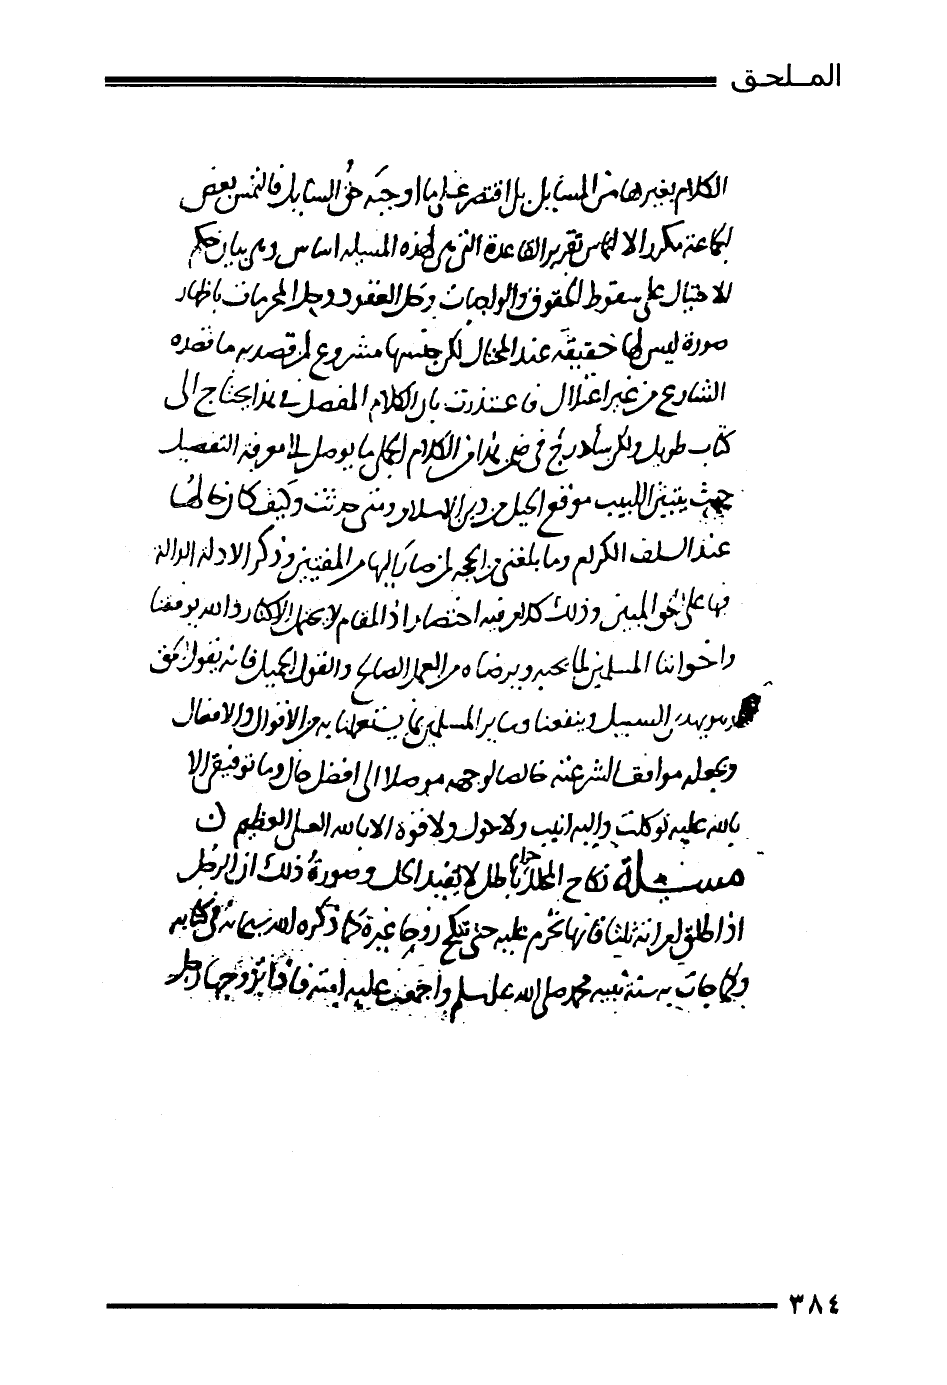 الملحق
الكلام بغيرها من المسائل بل اقتصر على ما اوجبه حق السايل فالتمس بعض
الجماعة مكررا الالتماس تقرير القاعدة التي هي لهذه المسيله اساس وهي بيان حكم
الاحتيال على سقوط الحقوق والواجبات وحل العقود وحل المحرمات باظهار
صورة ليس لها حقيقة عند المحتال لكن جنسها مشروع لمن قصد به ما قصده
الشارع من غير اعتلال فاعتذرت بان الكلام المفصل في هذا يحتاج الى
كتاب طويل ولكن سأدرج في ضمن هذا من الكلام الجملي ما يوصل الى معرفة التفصيل
بحيث يتبين اللبيب موقع الحيل من دين الاسلام ومتى حدثت وكيف كان حالها
عند السلف الكرام وما بلغني من الحجه لمن صار اليها من المفتين وذكر الادلة الدالة
فيها على الحق المبين وذلك كلام فيه اختصار اذ المقام لا يحتمل الاكثار والله يوفقنا
واخواننا المسلمين لما يحبه ويرضاه من العمل الصالح والقول الجميل فانه يقول الحق
وهو يهدي السبيل وينفعنا وساير المسلمين بما يستعملنا به من الاقوال والافعال
ويجعله موافقا لشرعته خالصا لوجهه موصلا الى افضل حال وما توفيقي الا
بالله عليه توكلت واليه انيب ولا حول ولا قوة الا بالله العلي العظيم
مسئلة نكاح المحلل حرام باطل لا يفيد الحل وصورة ذلك ان الرجل
اذا طلق امرأته ثلثا فانها تحرم عليه حتى تنكح زوجا غيره كما ذكره الله سبحانه في كتابه
وكما جات به سنة نبيه محمد صلى الله عليه وسلم واجمعت عليه امته فاذا تزوجها رجل
٣٨٤